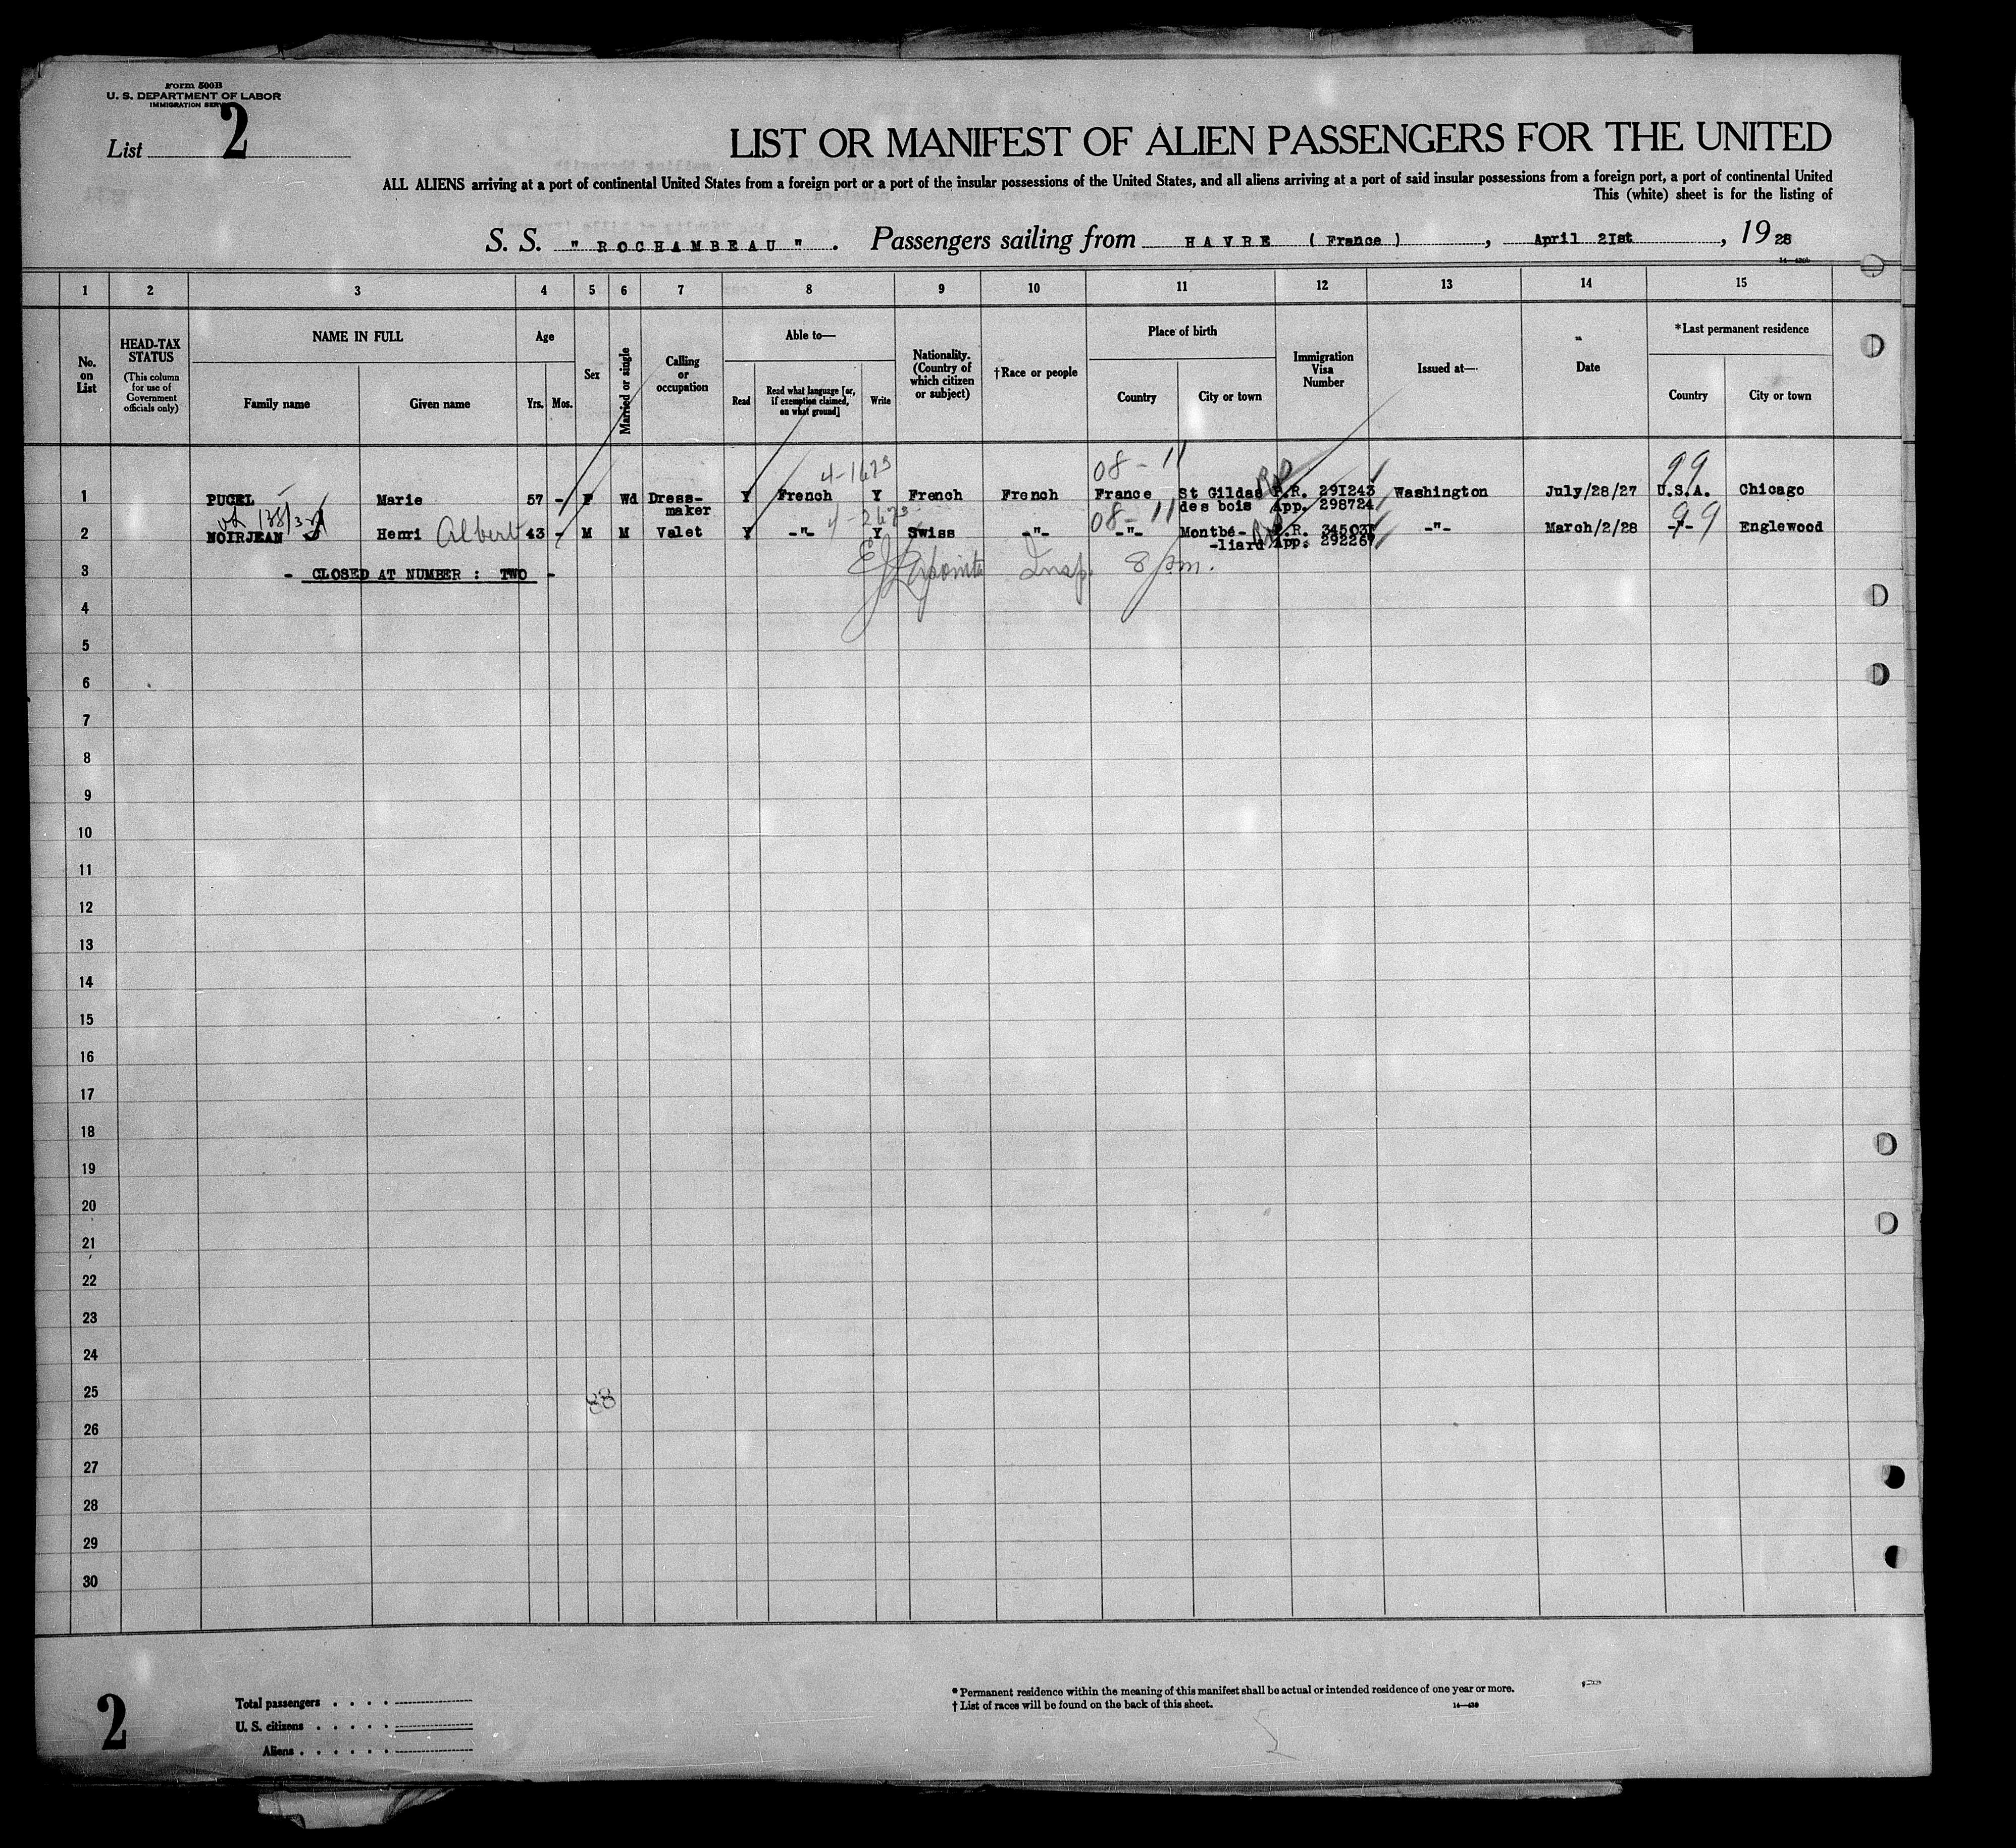 Form 500B
U. S. DEPARTMENT OF LABOR
IMMIGRATION SERV
List 2
LIST OR MANIFEST OF ALIEN PASSENGERS FOR THE UNITED
ALL ALIENS arriving at a port of continental United States from a foreign port or a port of the insular possessions of the United States, and all aliens arriving at a port of said insular possessions from a foreign port, a port of continental United
This (white) sheet is for the listing of
S. S. " ROCHAMBEAU " . Passengers sailing from HAVRE ( France ) , April 2Ist , 19 28
1 2 3 4 5 6 7 8 9 10 11 12 13 14 15
No. on List
HEAD-TAX STATUS
(This column for use of Government officials only)
NAME IN FULL
Family name
Given name
Age
Yrs.
Mos.
Sex
Married or single
Calling or occupation
Able to—
Read
Read what language [or, if exemption claimed, on what ground]
Write
Nationality. (Country of which citizen or subject)
†Race or people
Place of birth
Country
City or town
Immigration Visa Number
Issued at—
Date
*Last permanent residence
Country
City or town
4-1623 08-11 99
1 PUCEL Marie 57 - F Wd Dress- Y French Y French French France St Gildas P.R. 29I243 Washington July/28/27 U.S.A. Chicago
maker des bois App. 298724
08-11 99
2 NOIRJEAN Henri Albert 43 - M M Valet Y -"- Y Swiss -"- -"- Montbé- P.R. 34503 -"- March/2/28 -"- Englewood
-liard App: 29226
3 - CLOSED AT NUMBER : TWO -
Insp. 8 pm.
4
5
6
7
8
9
10
11
12
13
14
15
16
17
18
19
20
21
22
23
24
25
88
26
27
28
29
30
2
Total passengers . . . .
U. S. citizens . . . . .
Aliens . . . . . .
* Permanent residence within the meaning of this manifest shall be actual or intended residence of one year or more.
† List of races will be found on the back of this sheet.